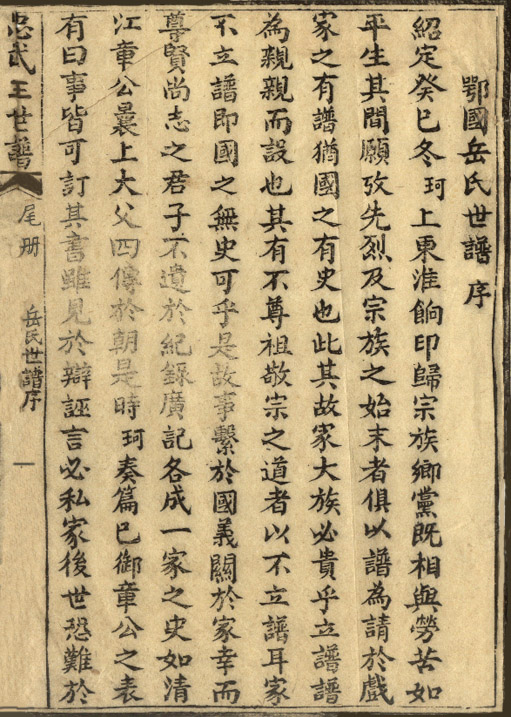 鄂國岳氏世譜序
紹定癸巳冬珂上東淮餉印歸宗族鄉黨既相與勞苦如
平生其間願攷先烈及宗族之始末者俱以譜為請於戲
家之有譜猶國之有史也此其故家大族必貴乎立譜譜
為親親而設也其有不尊祖敬宗之道者以不立譜耳家
不立譜即國之無史可乎是故事繫於國義關於家幸而
尊賢尚志之君子不遺於紀錄廣記各成一家之史如清
江章公曩上大父四傳於朝是時珂奏篇已御章公之表
有曰事皆可訂其書雖見於辯誣言必私家後世恐難於
忠武王世譜
尾册
岳氏世譜序
一